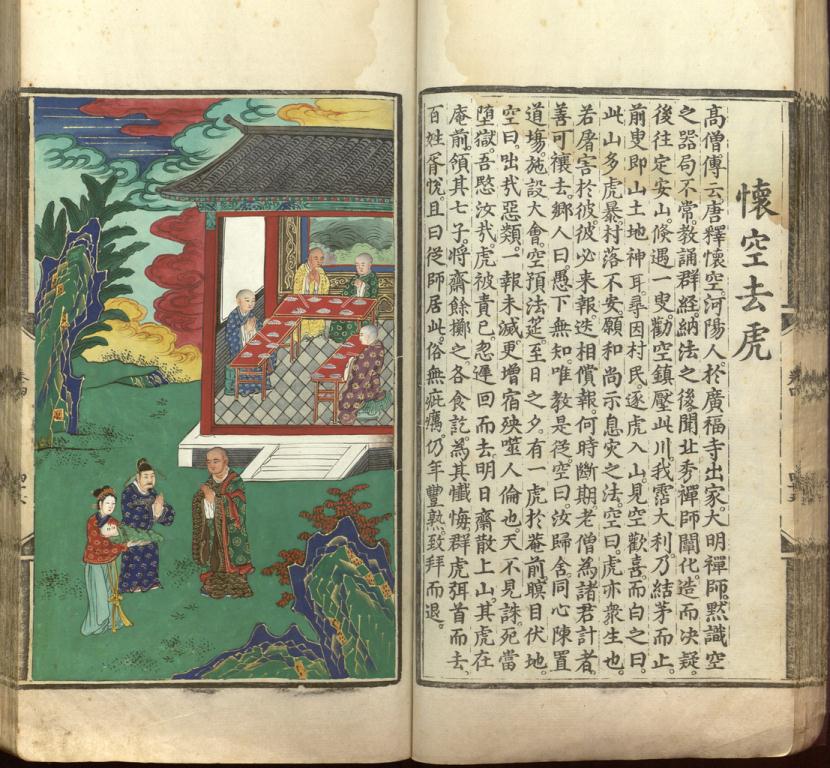 懷空去虎
高僧傳云。唐釋懷空。河陽人。於廣福寺出家。大明禪師。默識空
之器局不常。教誦群經。納法之後。聞北秀禪師闡化。造而決疑。
後往定安山。倏遇一叟。勸空鎮壓此川。我霑大利。乃結茅而止。
前叟即山土地神耳。尋因村民。逐虎入山。見空歡喜。而白之曰。
此山多虎暴。村落不安。願和尚示息災之法。空曰。虎亦衆生也。
若屠害於彼。彼必来報。迭相償報。何時斷期。老僧為諸君計者。
善可禳去。鄉人曰。愚下無知。唯教是從。空曰。汝歸舍。同心陳置
道塲。施設大會。空預法筵。至日之夕。有一虎於菴前。瞑目伏地。
空曰。咄哉惡類。一報未滅。更增宿殃。噬人倫也。天不見誅。死當
墮獄。吾愍汝哉。虎被責已。忽遲回而去。明日齋散上山。其虎在
庵前。領其七子。将齋餘擲之。各食訖。為其懺悔。群虎弭首而去。
百姓胥悅。且曰。從師居此。俗無疵癘。仍年豐熟。致拜而退。